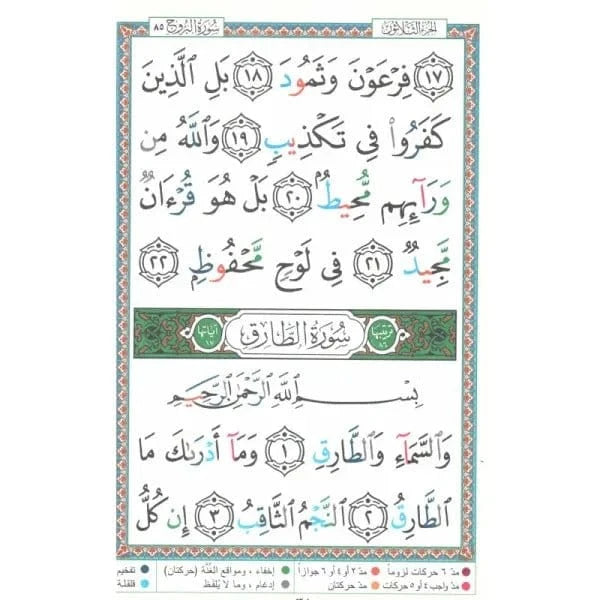 الجزء الثلاثون
سورة البروج ٨٥
١٧ فِرْعَوْنَ وَثَمُودَ ١٨ بَلِ ٱلَّذِينَ
كَفَرُوا۟ فِى تَكْذِيبٍ ١٩ وَٱللَّهُ مِن
وَرَآئِهِم مُّحِيطٌۢ ٢٠ بَلْ هُوَ قُرْءَانٌ
مَّجِيدٌ ٢١ فِى لَوْحٍ مَّحْفُوظٍۭ ٢٢
ترتيبها ٨٦ سُورَةُ الطَّارِقِ آياتها ١٧
بِسْمِ ٱللَّهِ ٱلرَّحْمَٰنِ ٱلرَّحِيمِ
وَٱلسَّمَآءِ وَٱلطَّارِقِ ١ وَمَآ أَدْرَىٰكَ مَا
ٱلطَّارِقُ ٢ ٱلنَّجْمُ ٱلثَّاقِبُ ٣ إِن كُلُّ
مدّ ٦ حركات لزوماً مدّ ٢ أو ٤ أو ٦ جوازاً إخفاء، ومواقع الغُنَّة (حركتان) تفخيم
مدّ واجب ٤ أو ٥ حركات مدّ حركتان إدغام، وما لا يُلفظ قلقلة